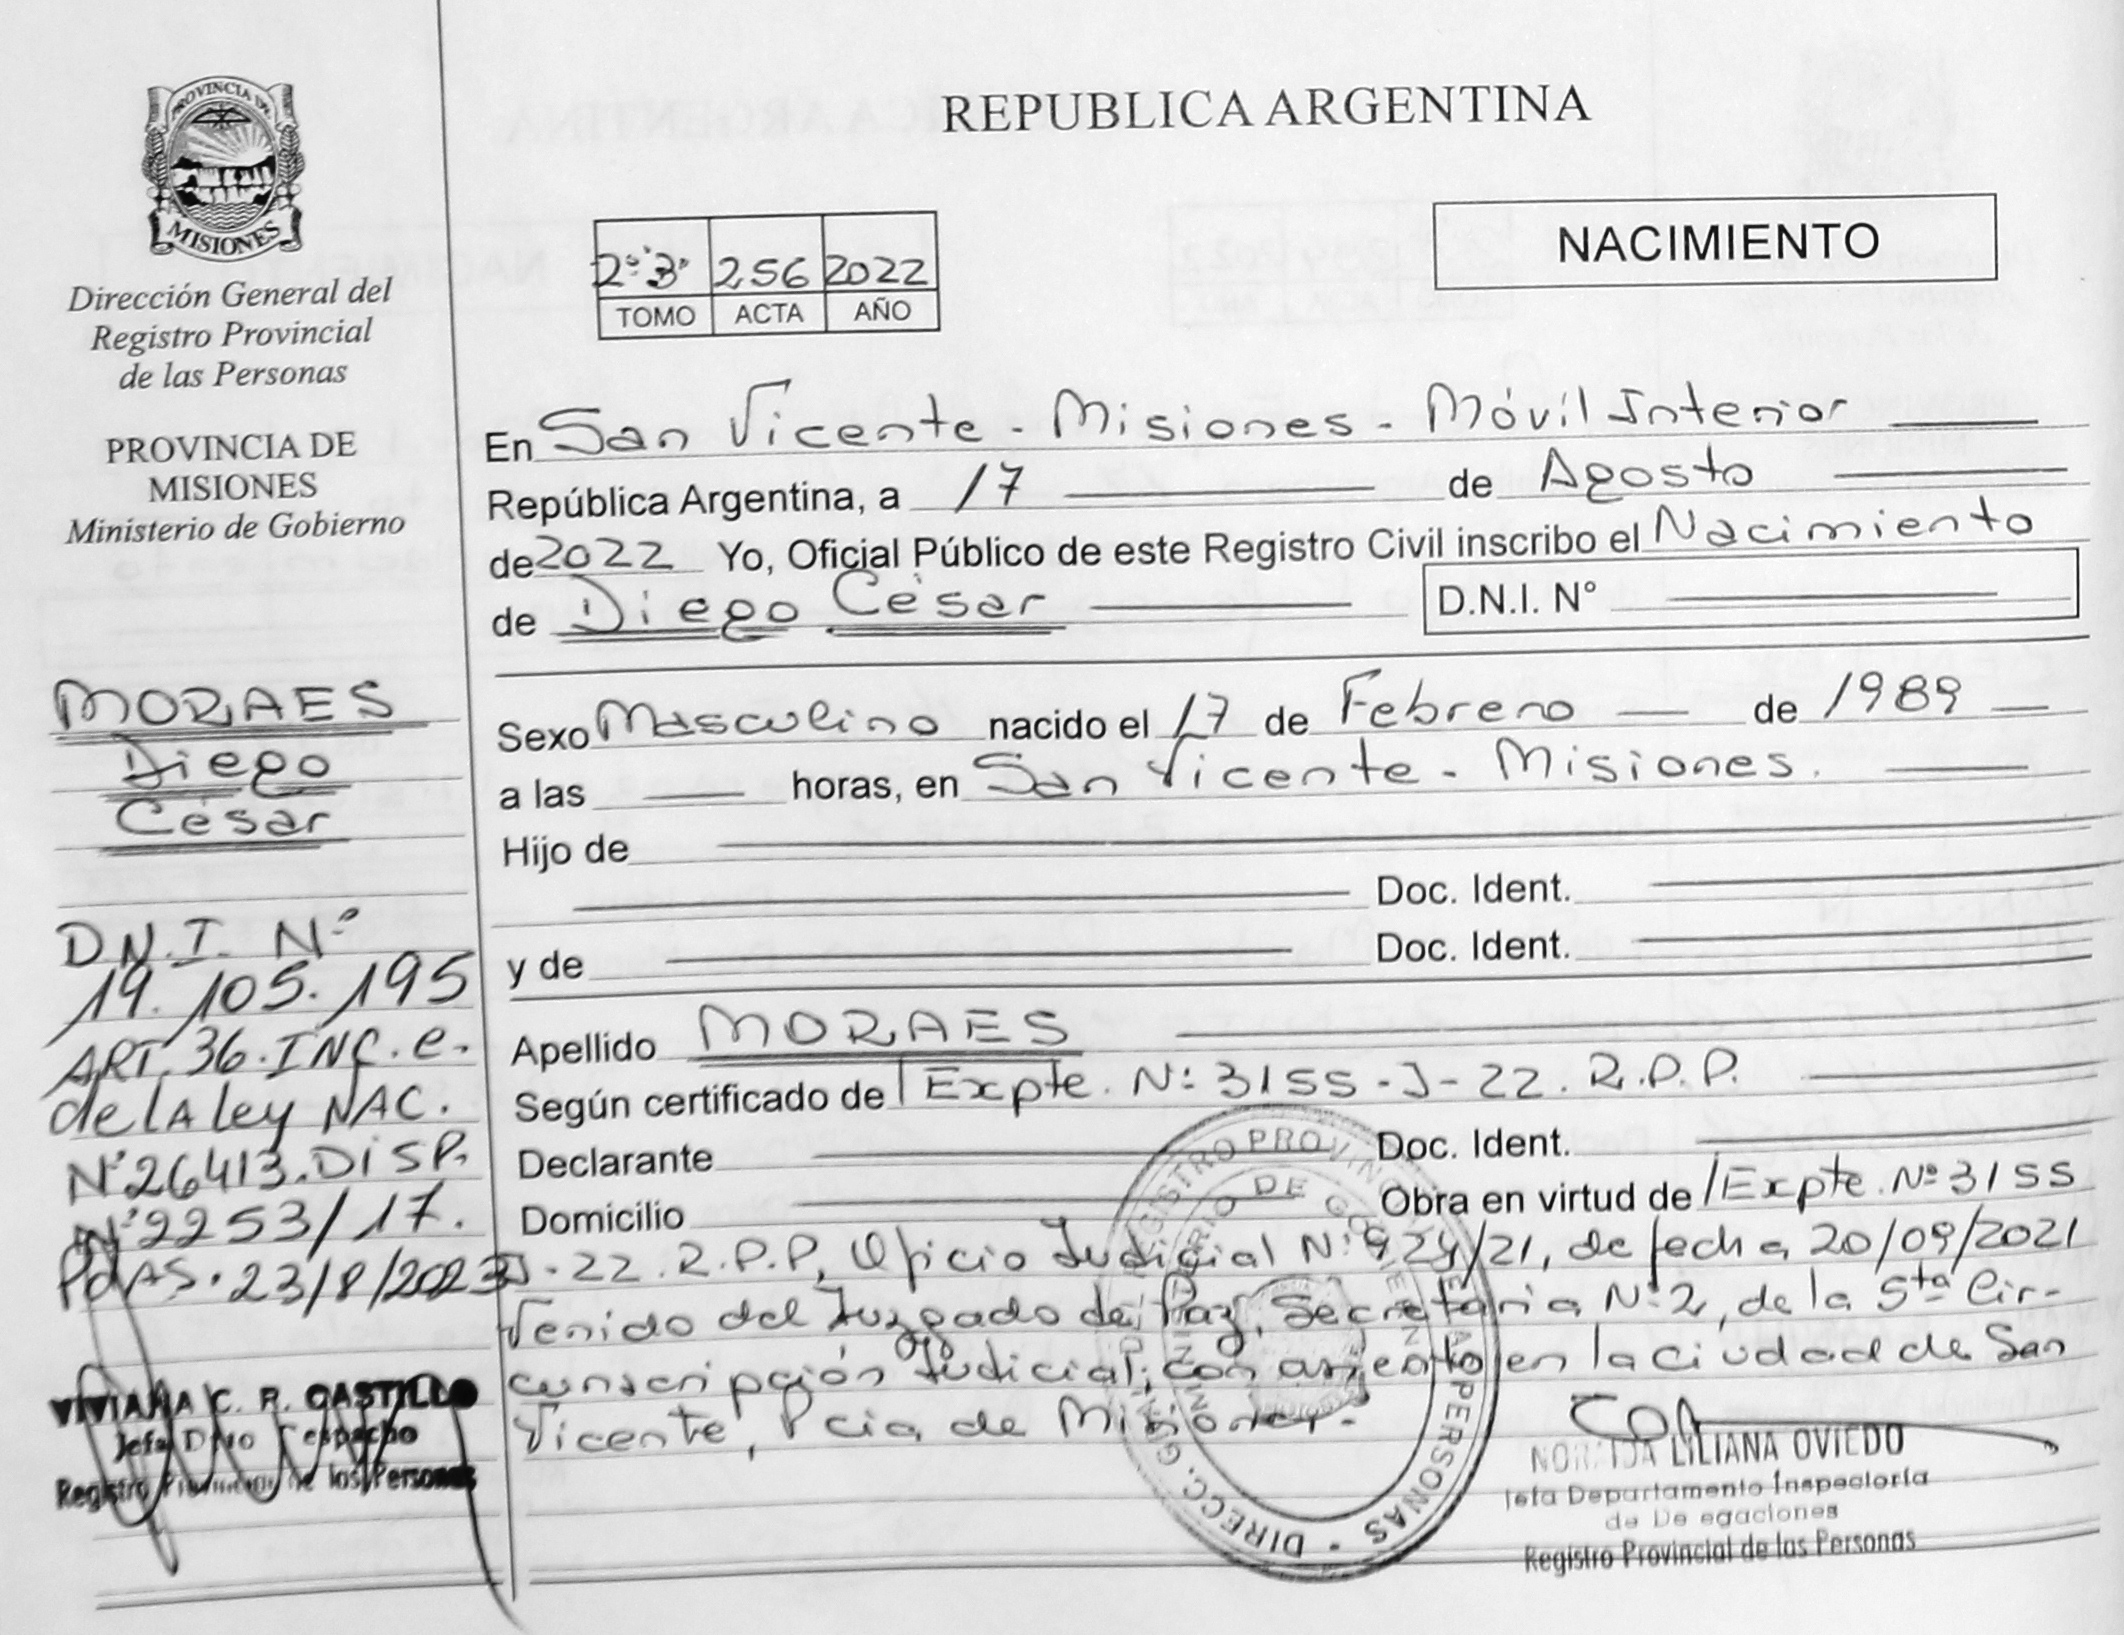 PROVINCIA DE
MISIONES
Dirección General del
Registro Provincial
de las Personas
PROVINCIA DE
MISIONES
Ministerio de Gobierno
MORAES
Diego
César
D.N.I. Nº
19.105.195
ART.36.INC.e.
de lA ley NAC.
Nº26413.DiSP.
Nº2253/17.
PdAS.23/8/2023
VIVIANA C. R. CASTILLO
Jefa Dpto Despacho
Registro Provincial de las Personas
REPUBLICA ARGENTINA
NACIMIENTO
2º 3º 256 2022
TOMO ACTA AÑO
En San Vicente - Misiones - Móvil Interior
República Argentina, a 17 de Agosto
de 2022 Yo, Oficial Público de este Registro Civil inscribo el Nacimiento
de Diego César D.N.I. N°
Sexo Masculino nacido el 17 de Febrero de 1989
a las horas, en San Vicente - Misiones.
Hijo de
Doc. Ident.
y de Doc. Ident.
Apellido MORAES
Según certificado de Expte. Nº 3155-J-22. R.P.P.
Declarante Doc. Ident.
Domicilio Obra en virtud de Expte. Nº 3155
J-22.R.P.P, Oficio Judicial Nº 924/21, de fecha 20/09/2021
Venido del Juzgado de Paz, Secretaria Nº2, de la 5ta Cir-
cunscripción Judicial, con asiento en la ciudad de San
Vicente, Pcia de Misiones.-
DIRECC. GRAL. DEL REGISTRO PROVINCIAL DE LAS PERSONAS
MINISTERIO DE GOBIERNO
LILIANA OVIEDO
Jefa Departamento Inspectoría
de Delegaciones
Registro Provincial de las Personas